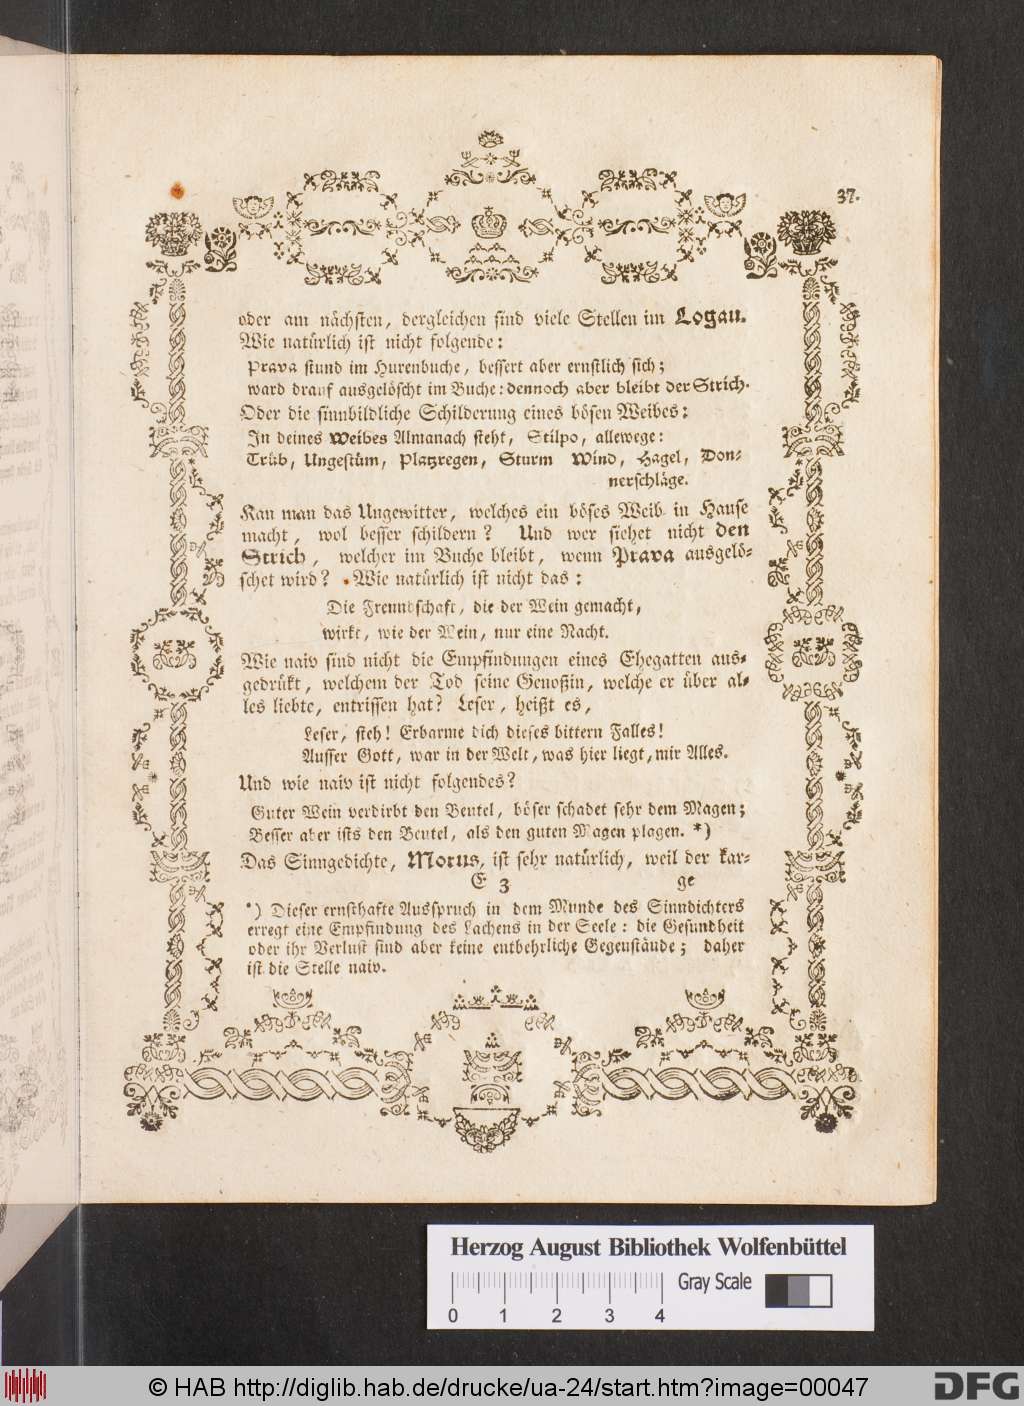 37.
oder am nächsten, dergleichen sind viele Stellen im Logau.
Wie natürlich ist nicht folgende:
Prava stund im Hurenbuche, bessert aber ernstlich sich;
ward drauf ausgelöscht im Buche: dennoch aber bleibt der Strich.
Oder die sinnbildliche Schilderung eines bösen Weibes:
In deines Weibes Almanach steht, Stilpo, allewege:
Trüb, Ungestüm, Platzregen, Sturm Wind, Hagel, Don-
nerschläge.
Kan man das Ungewitter, welches ein böses Weib in Hause
macht, wol besser schildern? Und wer siehet nicht den
Strich, welcher im Buche bleibt, wenn Prava ausgelö-
schet wird? Wie natürlich ist nicht das:
Die Freundschaft, die der Wein gemacht,
wirkt, wie der Wein, nur eine Nacht.
Wie naiv sind nicht die Empfindungen eines Ehegatten aus-
gedrükt, welchem der Tod seine Genoßin, welche er über al-
les liebte, entrissen hat? Leser, heißt es,
Leser, steh! Erbarme dich dieses bittern Falles!
Ausser Gott, war in der Welt, was hier liegt, mir Alles.
Und wie naiv ist nicht folgendes?
Guter Wein verdirbt den Beutel, böser schadet sehr dem Magen;
Besser aber ists den Beutel, als den guten Magen plagen. *)
Das Sinngedichte, Morus, ist sehr natürlich, weil der kar-
E 3 ge
*) Dieser ernsthafte Ausspruch in dem Munde des Sinndichters
erregt eine Empfindung des Lachens in der Seele: die Gesundheit
oder ihr Verlust sind aber keine entbehrliche Gegenstände; daher
ist die Stelle naiv.
Herzog August Bibliothek Wolfenbüttel
Gray Scale
0 1 2 3 4
© HAB http://diglib.hab.de/drucke/ua-24/start.htm?image=00047
DFG